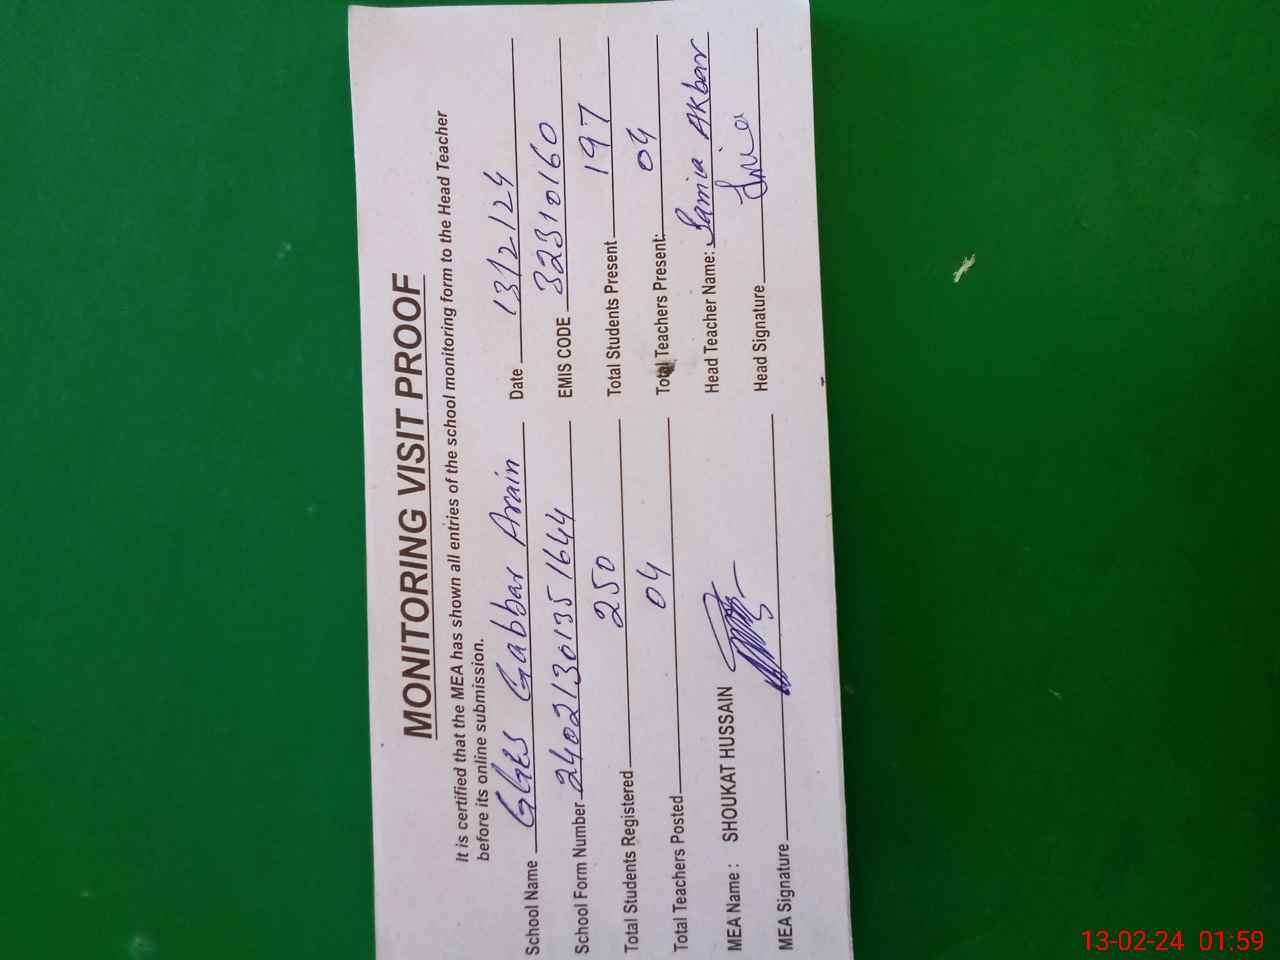 MONITORING VISIT PROOF
It is certified that the MEA has shown all entries of the school monitoring form to the Head Teacher
before its online submission.
School Name GGES Gabbar Arain Date 13/2/24
School Form Number 2402130135 1644 EMIS CODE 32310160
Total Students Registered 250 Total Students Present 197
Total Teachers Posted 04 Total Teachers Present: 04
MEA Name : SHOUKAT HUSSAIN Head Teacher Name: Samia Akbar
MEA Signature Head Signature
13-02-24 01:59